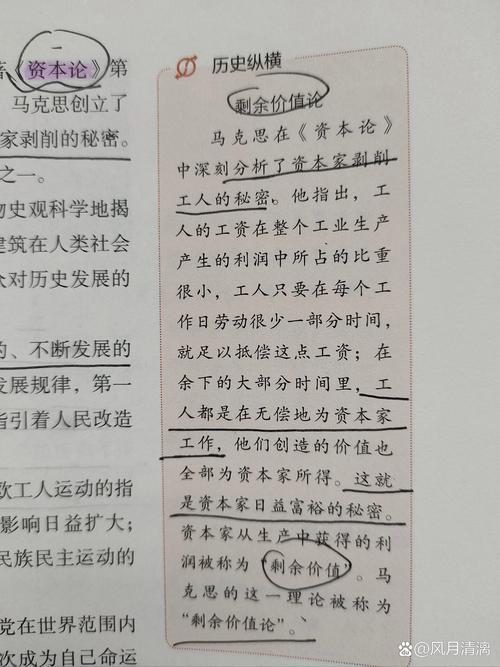 著《资本论》第
马克思创立了
家剥削的秘密。
之一。
物史观科学地揭
建筑在人类社会
众对历史发展的
的、不断发展的
发展规律，第一
指引着人民改造
欧工人运动的指
影响日益扩大；
民族民主运动的
党在世界范围内
次成为自己命运
历史纵横
剩余价值论
马克思在《资本论》
中深刻分析了资本家剥削
工人的秘密。他指出，工
人的工资在整个工业生产
产生的利润中所占的比重
很小，工人只要在每个工
作日劳动很少一部分时间，
就足以抵偿这点工资；在
余下的大部分时间里，工
人都是在无偿地为资本家
工作，他们创造的价值也
全部为资本家所得。这就
是资本家日益富裕的秘密。
资本家从生产中获得的利
润被称为“剩余价值”。马
克思的这一理论被称为
“剩余价值论”。
@风月清漓